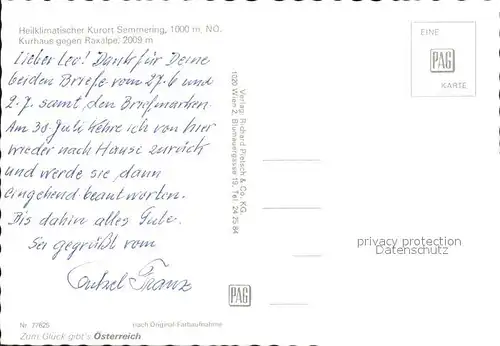 Heilklimatischer Kurort Semmering, 1000 m, NÖ.
Kurhaus gegen Raxalpe, 2009 m
Lieber Leo! Dank für Deine
beiden Briefe vom 27.6 und
2.7. samt den Briefmarken.
Am 30. Juli kehre ich von hier
wieder nach Hause zurück
und werde sie dann
eingehend beantworten.
Bis dahin alles Gute.
Sei gegrüßt vom
Onkel Franz
Nr. 77625
nach Original-Farbaufnahme
Zum Glück gibt's Österreich
Verlag: Richard Pietsch & Co. KG.
1020 Wien 2, Blumauergasse 19, Tel. 24 75 84
PAG
EINE
PAG
KARTE
privacy protection
Datenschutz